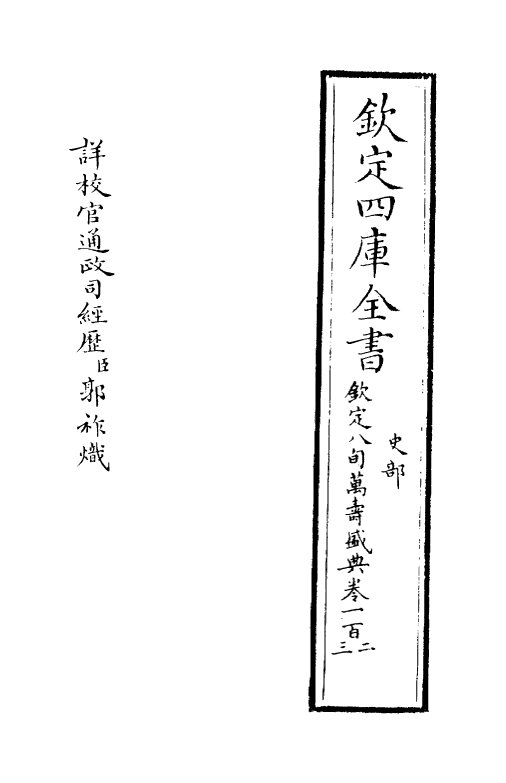 欽定四庫全書
史部
欽定八旬萬壽盛典卷一百二三
詳校官通政司經歷臣郭祚熾